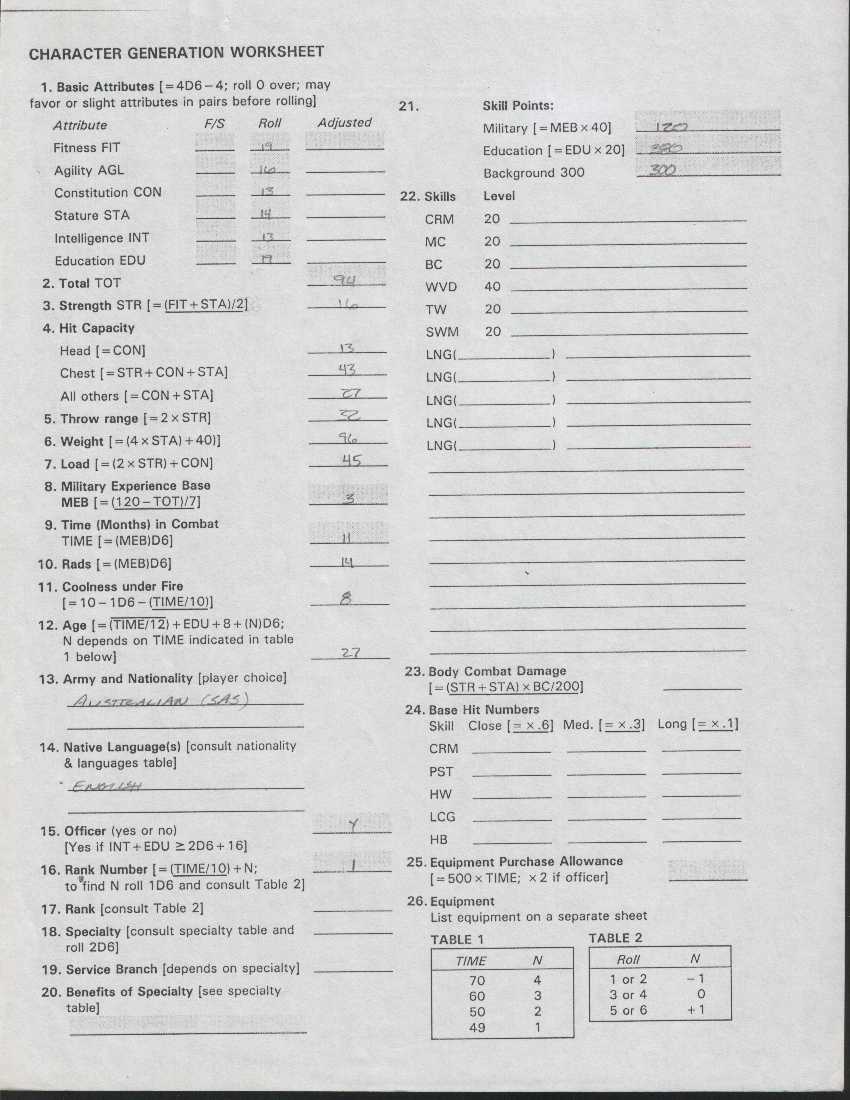 CHARACTER GENERATION WORKSHEET
1. Basic Attributes [=4D6−4; roll 0 over; may
favor or slight attributes in pairs before rolling]
Attribute F/S Roll Adjusted
Fitness FIT 19
Agility AGL 16
Constitution CON 13
Stature STA 14
Intelligence INT 13
Education EDU 19
2. Total TOT 94
3. Strength STR [=(FIT+STA)/2] 16
4. Hit Capacity
Head [=CON] 13
Chest [=STR+CON+STA] 43
All others [=CON+STA] 27
5. Throw range [=2×STR] 32
6. Weight [=(4×STA)+40)] 96
7. Load [=(2×STR)+CON] 45
8. Military Experience Base
MEB [=(120−TOT)/7] 3
9. Time (Months) in Combat
TIME [=(MEB)D6] 11
10. Rads [=(MEB)D6] 14
11. Coolness under Fire
[=10−1D6−(TIME/10)] 8
12. Age [=(TIME/12)+EDU+8+(N)D6;
N depends on TIME indicated in table
1 below] 27
13. Army and Nationality [player choice]
AUSTRALIAN (SAS)
14. Native Language(s) [consult nationality
& languages table]
ENGLISH
15. Officer (yes or no) Y
[Yes if INT+EDU ≥2D6+16]
16. Rank Number [=(TIME/10)+N; 1
to find N roll 1D6 and consult Table 2]
17. Rank [consult Table 2]
18. Specialty [consult specialty table and
roll 2D6]
19. Service Branch [depends on specialty]
20. Benefits of Specialty [see specialty
table]
21. Skill Points:
Military [=MEB×40] 120
Education [=EDU×20] 380
Background 300 300
22. Skills Level
CRM 20
MC 20
BC 20
WVD 40
TW 20
SWM 20
LNG( )
LNG( )
LNG( )
LNG( )
LNG( )
23. Body Combat Damage
[=(STR+STA)×BC/200]
24. Base Hit Numbers
Skill Close [=×.6] Med. [=×.3] Long [=×.1]
CRM
PST
HW
LCG
HB
25. Equipment Purchase Allowance
[=500×TIME; ×2 if officer]
26. Equipment
List equipment on a separate sheet
TABLE 1
TIME N
70 4
60 3
50 2
49 1
TABLE 2
Roll N
1 or 2 −1
3 or 4 0
5 or 6 +1